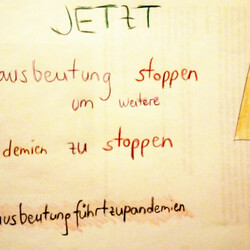 JETZT
ausbeutung stoppen
um weitere
demien zu stoppen
ausbeutungführtzupandemien